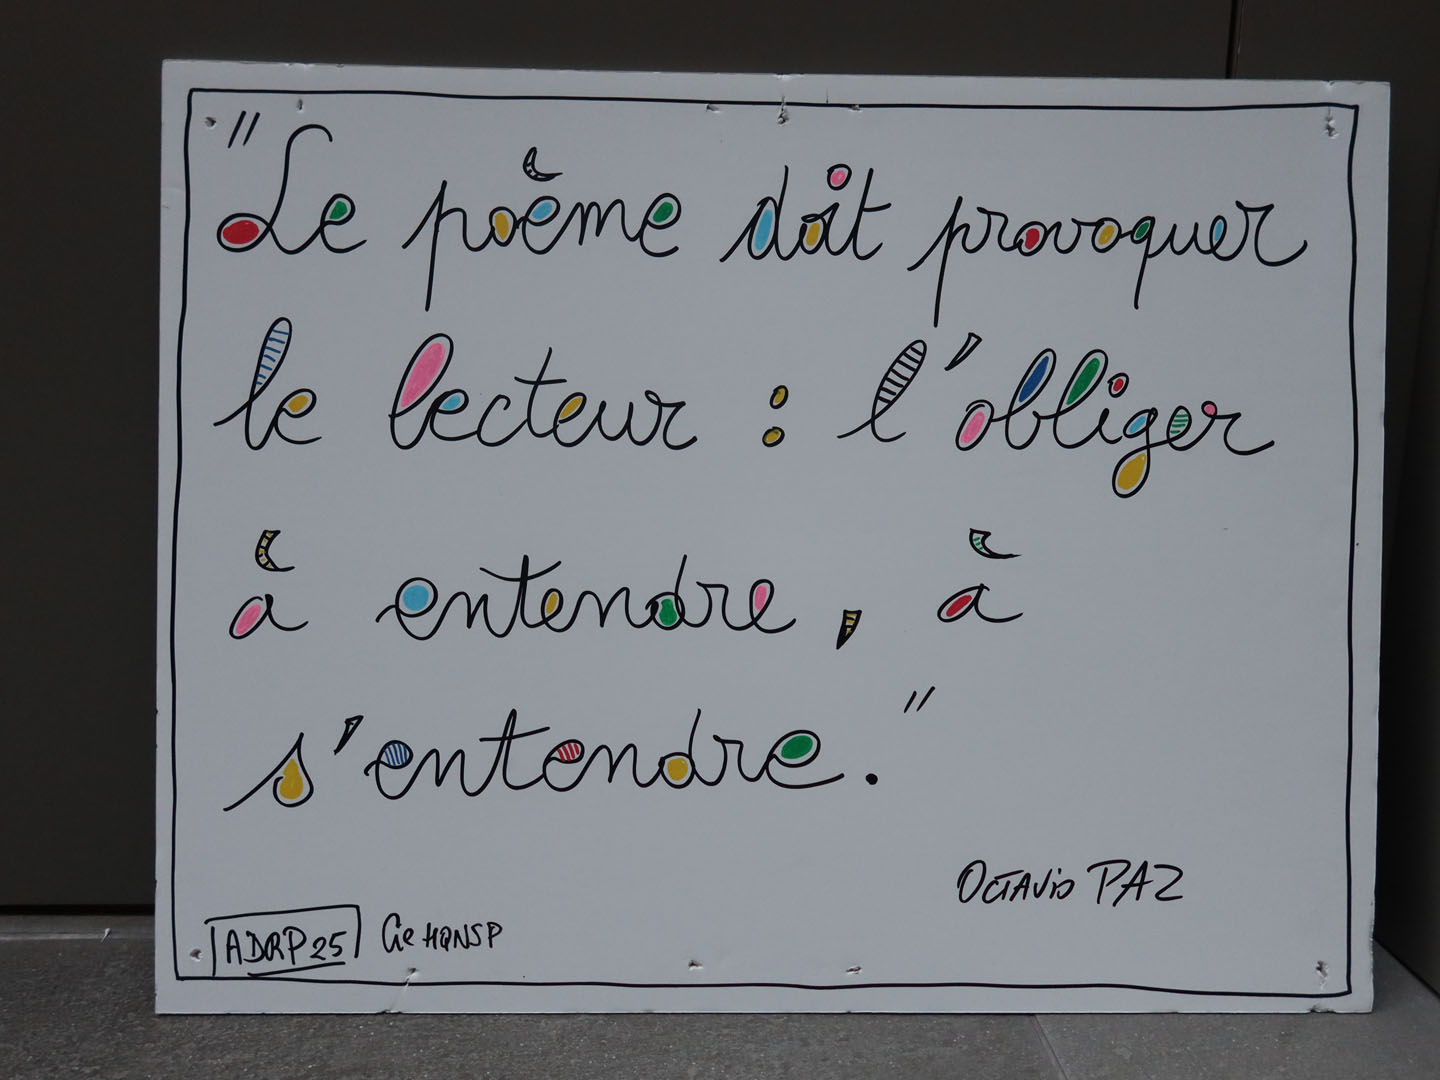 "Le poème doit provoquer
le lecteur : l'obliger
à entendre, à
s'entendre."
Octavio PAZ
ADRP25 Cie HQNSP